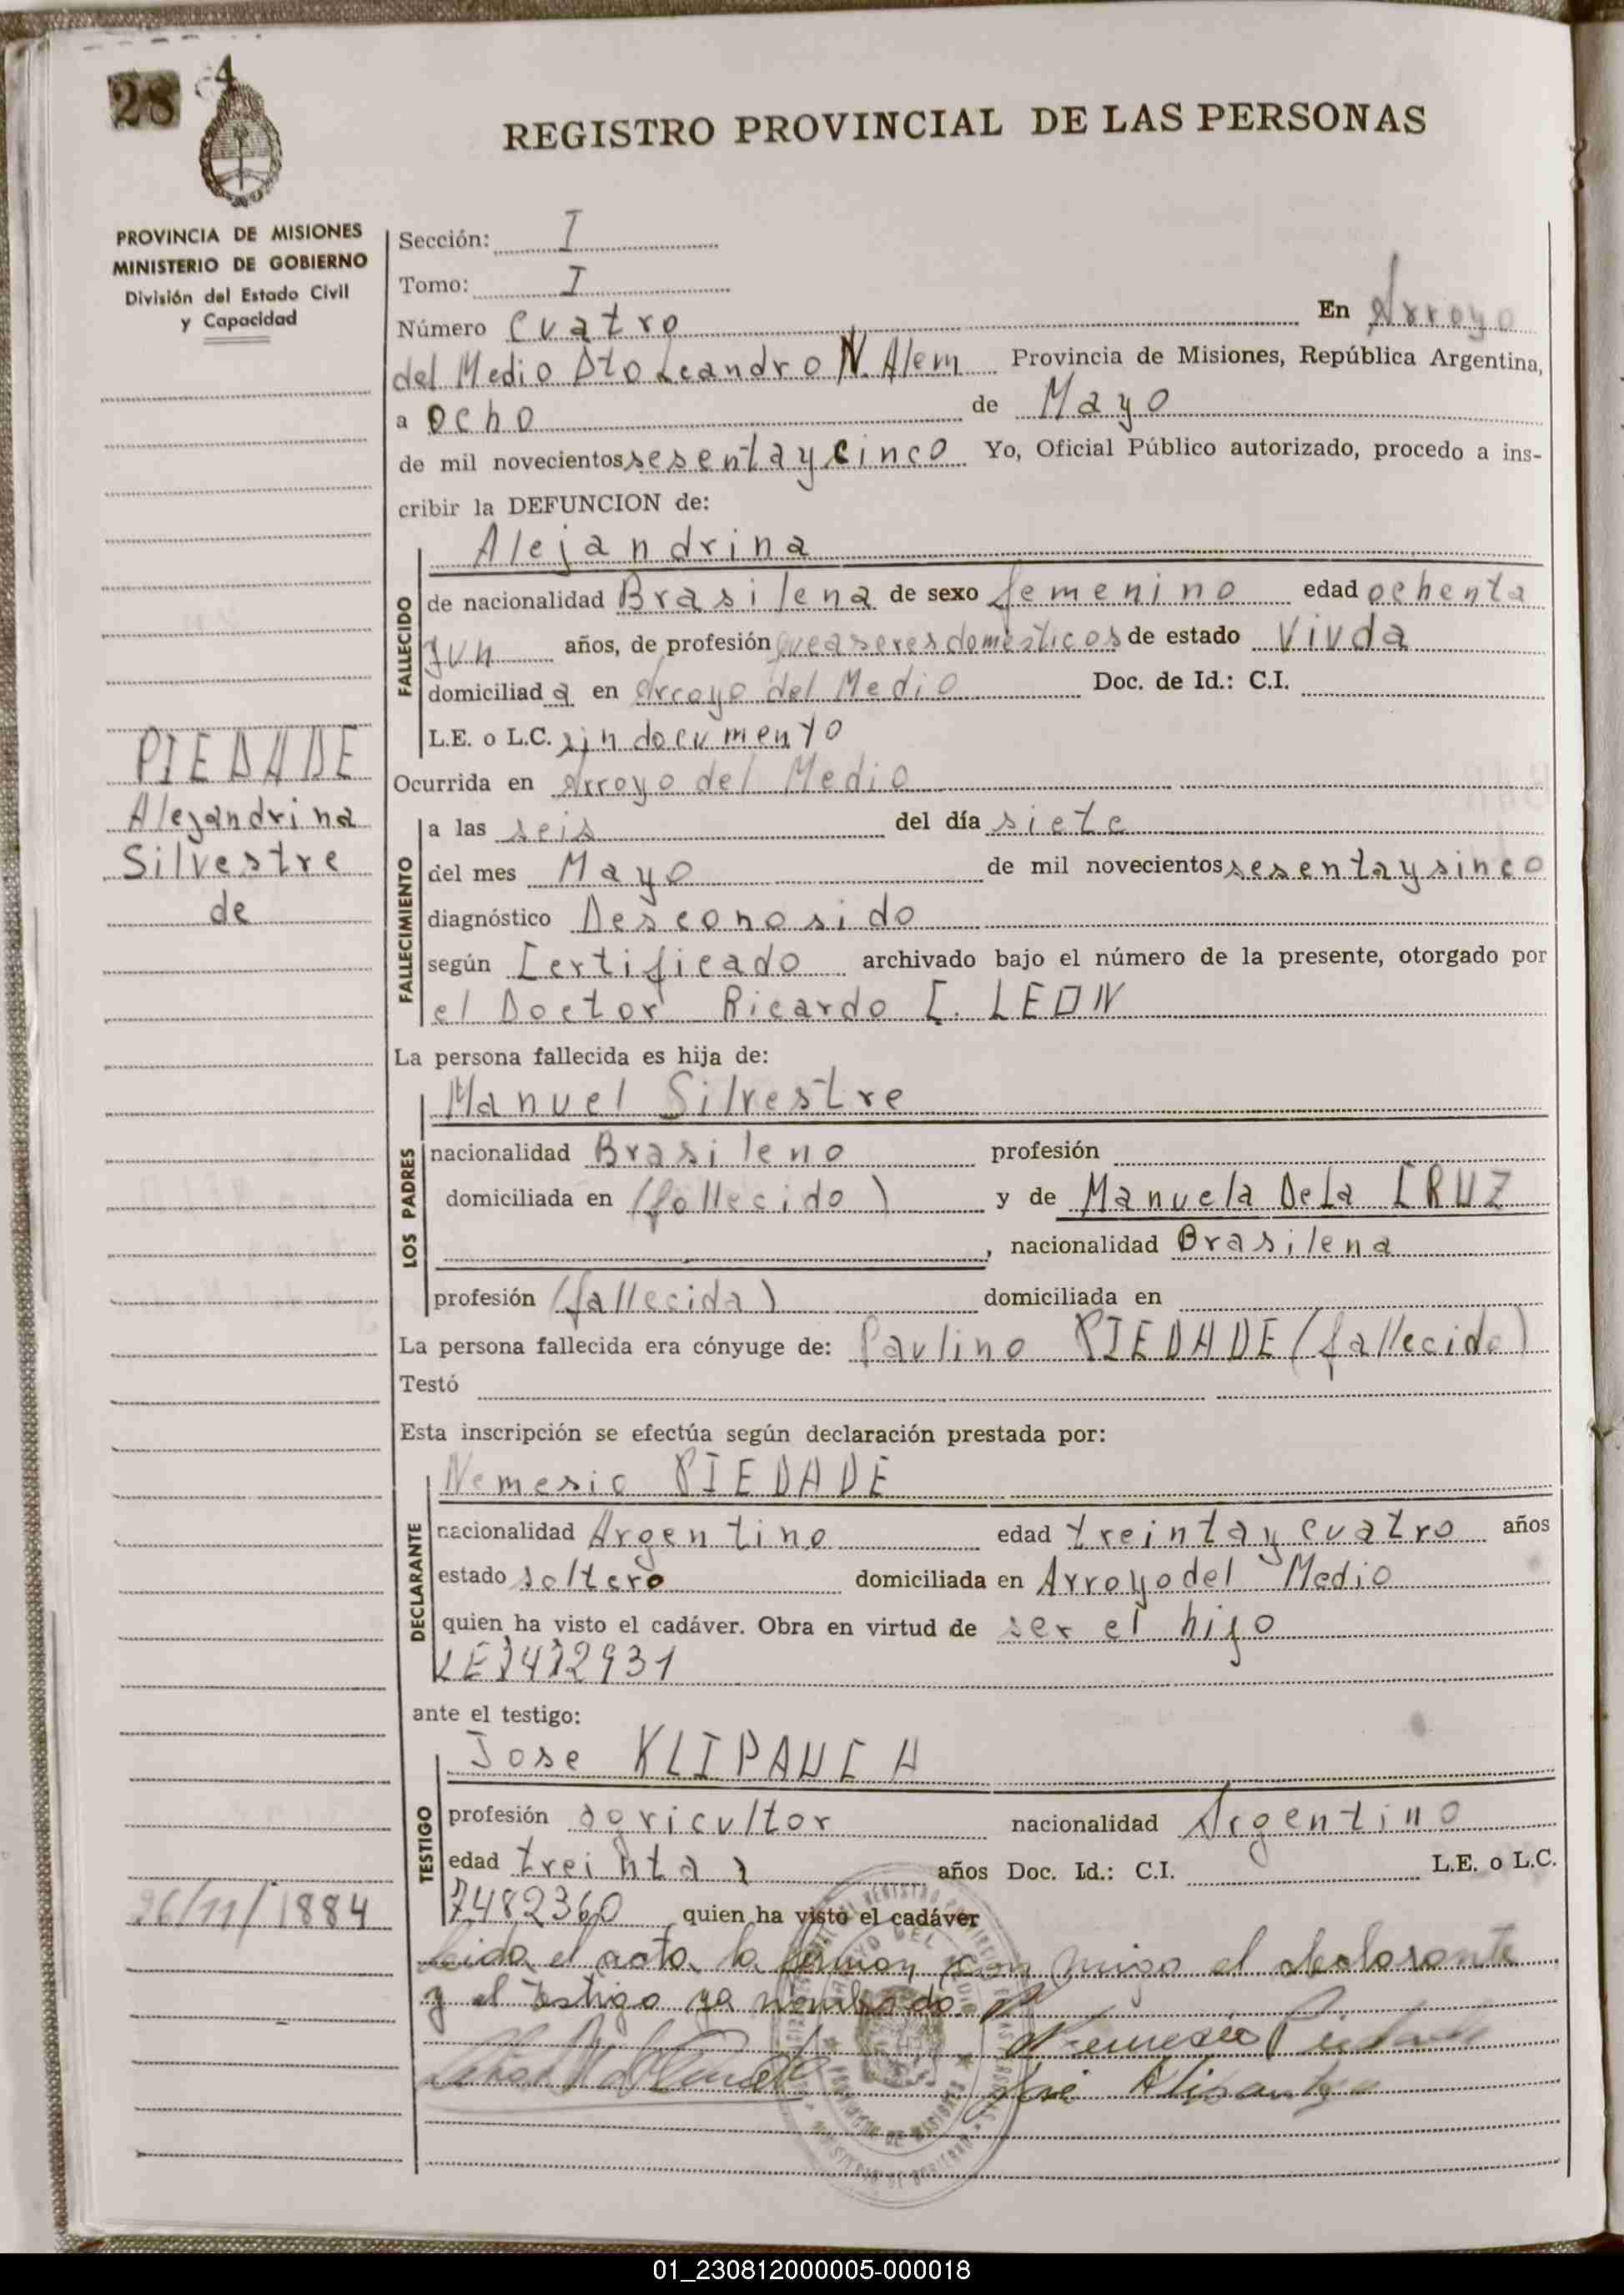 28 4
REGISTRO PROVINCIAL DE LAS PERSONAS
PROVINCIA DE MISIONES
MINISTERIO DE GOBIERNO
División del Estado Civil
y Capacidad
Sección: I
Tomo: I
Número Cuatro En Arroyo
del Medio Dto Leandro N. Alem Provincia de Misiones, República Argentina,
a ocho de Mayo
de mil novecientos sesentaycinco Yo, Oficial Público autorizado, procedo a ins-
cribir la DEFUNCION de:
Alejandrina
FALLECIDO
de nacionalidad Brasilena de sexo femenino edad ochenta
yun años, de profesión queaseresdomesticos de estado Viuda
domiciliad a en Arroyo del Medio Doc. de Id.: C.I.
L.E. o L.C. sin documento
PIEDADE
Alejandrina
Silvestre
de
Ocurrida en Arroyo del Medio
FALLECIMIENTO
a las seis del día siete
del mes Mayo de mil novecientos sesentaysinco
diagnóstico Desconosido
según Certificado archivado bajo el número de la presente, otorgado por
el Doctor Ricardo C. LEON
La persona fallecida es hija de:
LOS PADRES
Manuel Silvestre
nacionalidad Brasileno profesión
domiciliada en (fallecido) y de Manuela DeLa CRUZ
, nacionalidad Brasilena
profesión (fallecida) domiciliada en
La persona fallecida era cónyuge de: Paulino PIEDADE (fallecido)
Testó
Esta inscripción se efectúa según declaración prestada por:
DECLARANTE
Nemesio PIEDADE
nacionalidad Argentino edad treintaycuatro años
estado soltero domiciliada en Arroyo del Medio
quien ha visto el cadáver. Obra en virtud de ser el hijo
LE
ante el testigo:
TESTIGO
Jose KLIPAUCH
profesión agricultor nacionalidad Argentino
edad treinta años Doc. Id.: C.I. L.E. o L.C.
7482360 quien ha visto el cadáver
26/11/1884
Leida el acta la firman con migo el declarante
y el testigo ya nombrado.
Nemesio Piedade
José
01_230812000005-000018